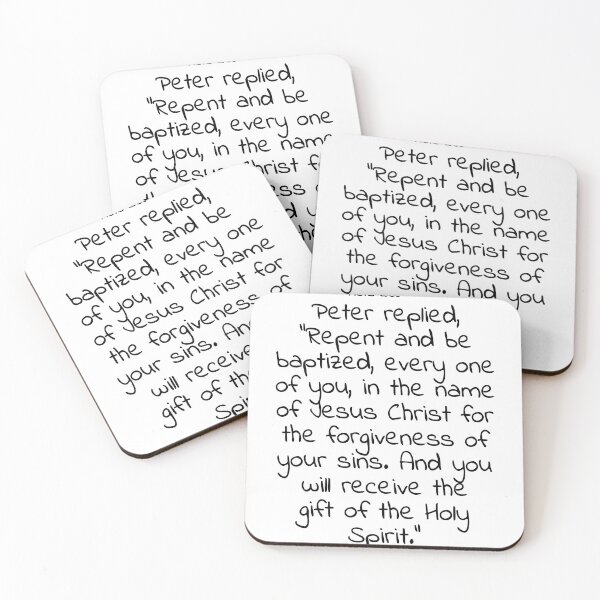 Peter replied,
"Repent and be
baptized, every one
of you, in the name
of Jesus Christ for
Peter replied,
"Repent and be
baptized, every one
of you, in the name
of Jesus Christ for
the forgiveness of
your sins. And you
Peter replied,
"Repent and be
baptized, every one
of you, in the name
of Jesus Christ for
the forgiveness of
your sins.
will receive
gift of the
Peter replied,
"Repent and be
baptized, every one
of you, in the name
of Jesus Christ for
the forgiveness of
your sins. And you
will receive the
gift of the Holy
Spirit."